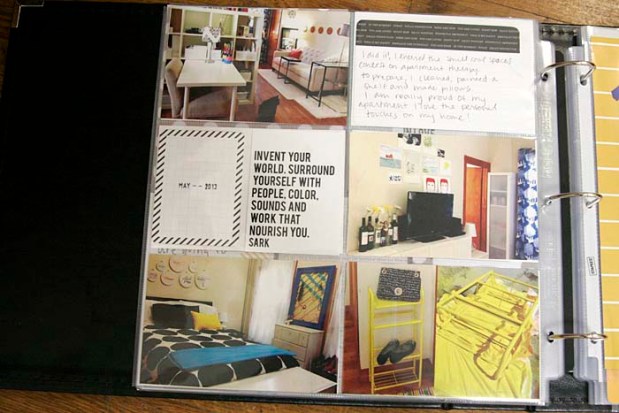 I did it! I entered the small cool spaces
contest on apartment therapy
to prepare, I cleaned, painted a
shelf and made pillows.
I am really proud of my
apartment I love the personal
touches on my home!
MAY -- 2013
INVENT YOUR
WORLD. SURROUND
YOURSELF WITH
PEOPLE, COLOR,
SOUNDS AND
WORK THAT
NOURISH YOU.
SARK